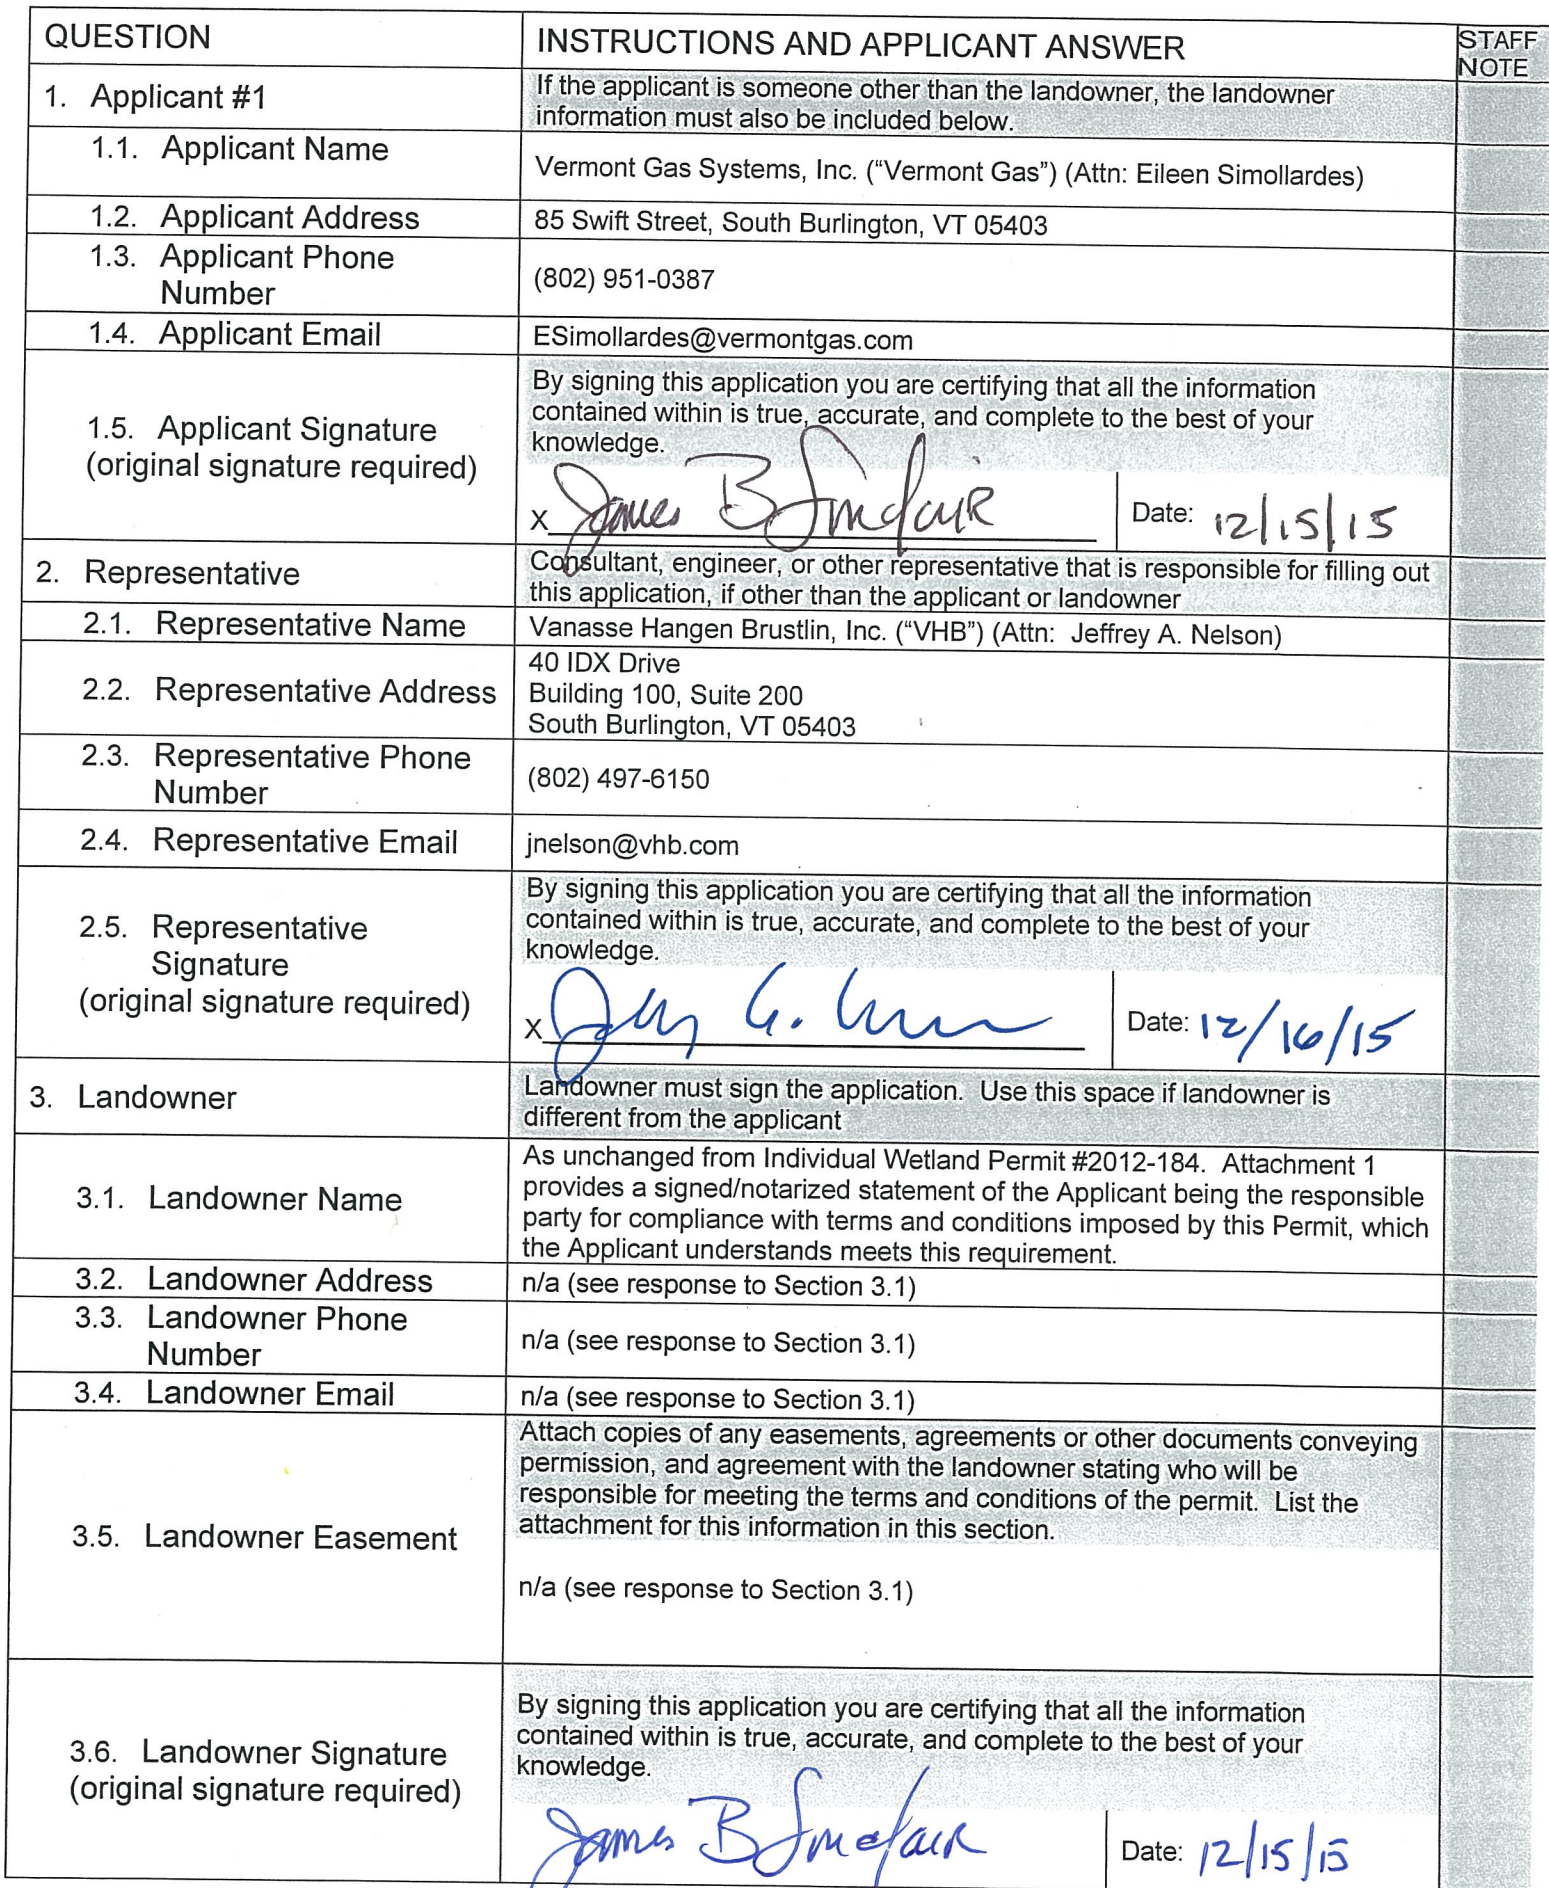 QUESTION
INSTRUCTIONS AND APPLICANT ANSWER
STAFF
NOTE
1. Applicant #1
If the applicant is someone other than the landowner, the landowner
information must also be included below.
1.1. Applicant Name
Vermont Gas Systems, Inc. (“Vermont Gas”) (Attn: Eileen Simollardes)
1.2. Applicant Address
85 Swift Street, South Burlington, VT 05403
1.3. Applicant Phone
Number
(802) 951-0387
1.4. Applicant Email
ESimollardes@vermontgas.com
1.5. Applicant Signature
(original signature required)
By signing this application you are certifying that all the information
contained within is true, accurate, and complete to the best of your
knowledge.
X James B Sinclair
Date: 12/15/15
2. Representative
Consultant, engineer, or other representative that is responsible for filling out
this application, if other than the applicant or landowner
2.1. Representative Name
Vanasse Hangen Brustlin, Inc. (“VHB”) (Attn: Jeffrey A. Nelson)
2.2. Representative Address
40 IDX Drive
Building 100, Suite 200
South Burlington, VT 05403
2.3. Representative Phone
Number
(802) 497-6150
2.4. Representative Email
jnelson@vhb.com
2.5. Representative
Signature
(original signature required)
By signing this application you are certifying that all the information
contained within is true, accurate, and complete to the best of your
knowledge.
X
Date: 12/16/15
3. Landowner
Landowner must sign the application. Use this space if landowner is
different from the applicant
3.1. Landowner Name
As unchanged from Individual Wetland Permit #2012-184. Attachment 1
provides a signed/notarized statement of the Applicant being the responsible
party for compliance with terms and conditions imposed by this Permit, which
the Applicant understands meets this requirement.
3.2. Landowner Address
n/a (see response to Section 3.1)
3.3. Landowner Phone
Number
n/a (see response to Section 3.1)
3.4. Landowner Email
n/a (see response to Section 3.1)
3.5. Landowner Easement
Attach copies of any easements, agreements or other documents conveying
permission, and agreement with the landowner stating who will be
responsible for meeting the terms and conditions of the permit. List the
attachment for this information in this section.
n/a (see response to Section 3.1)
3.6. Landowner Signature
(original signature required)
By signing this application you are certifying that all the information
contained within is true, accurate, and complete to the best of your
knowledge.
James B Sinclair
Date: 12/15/15